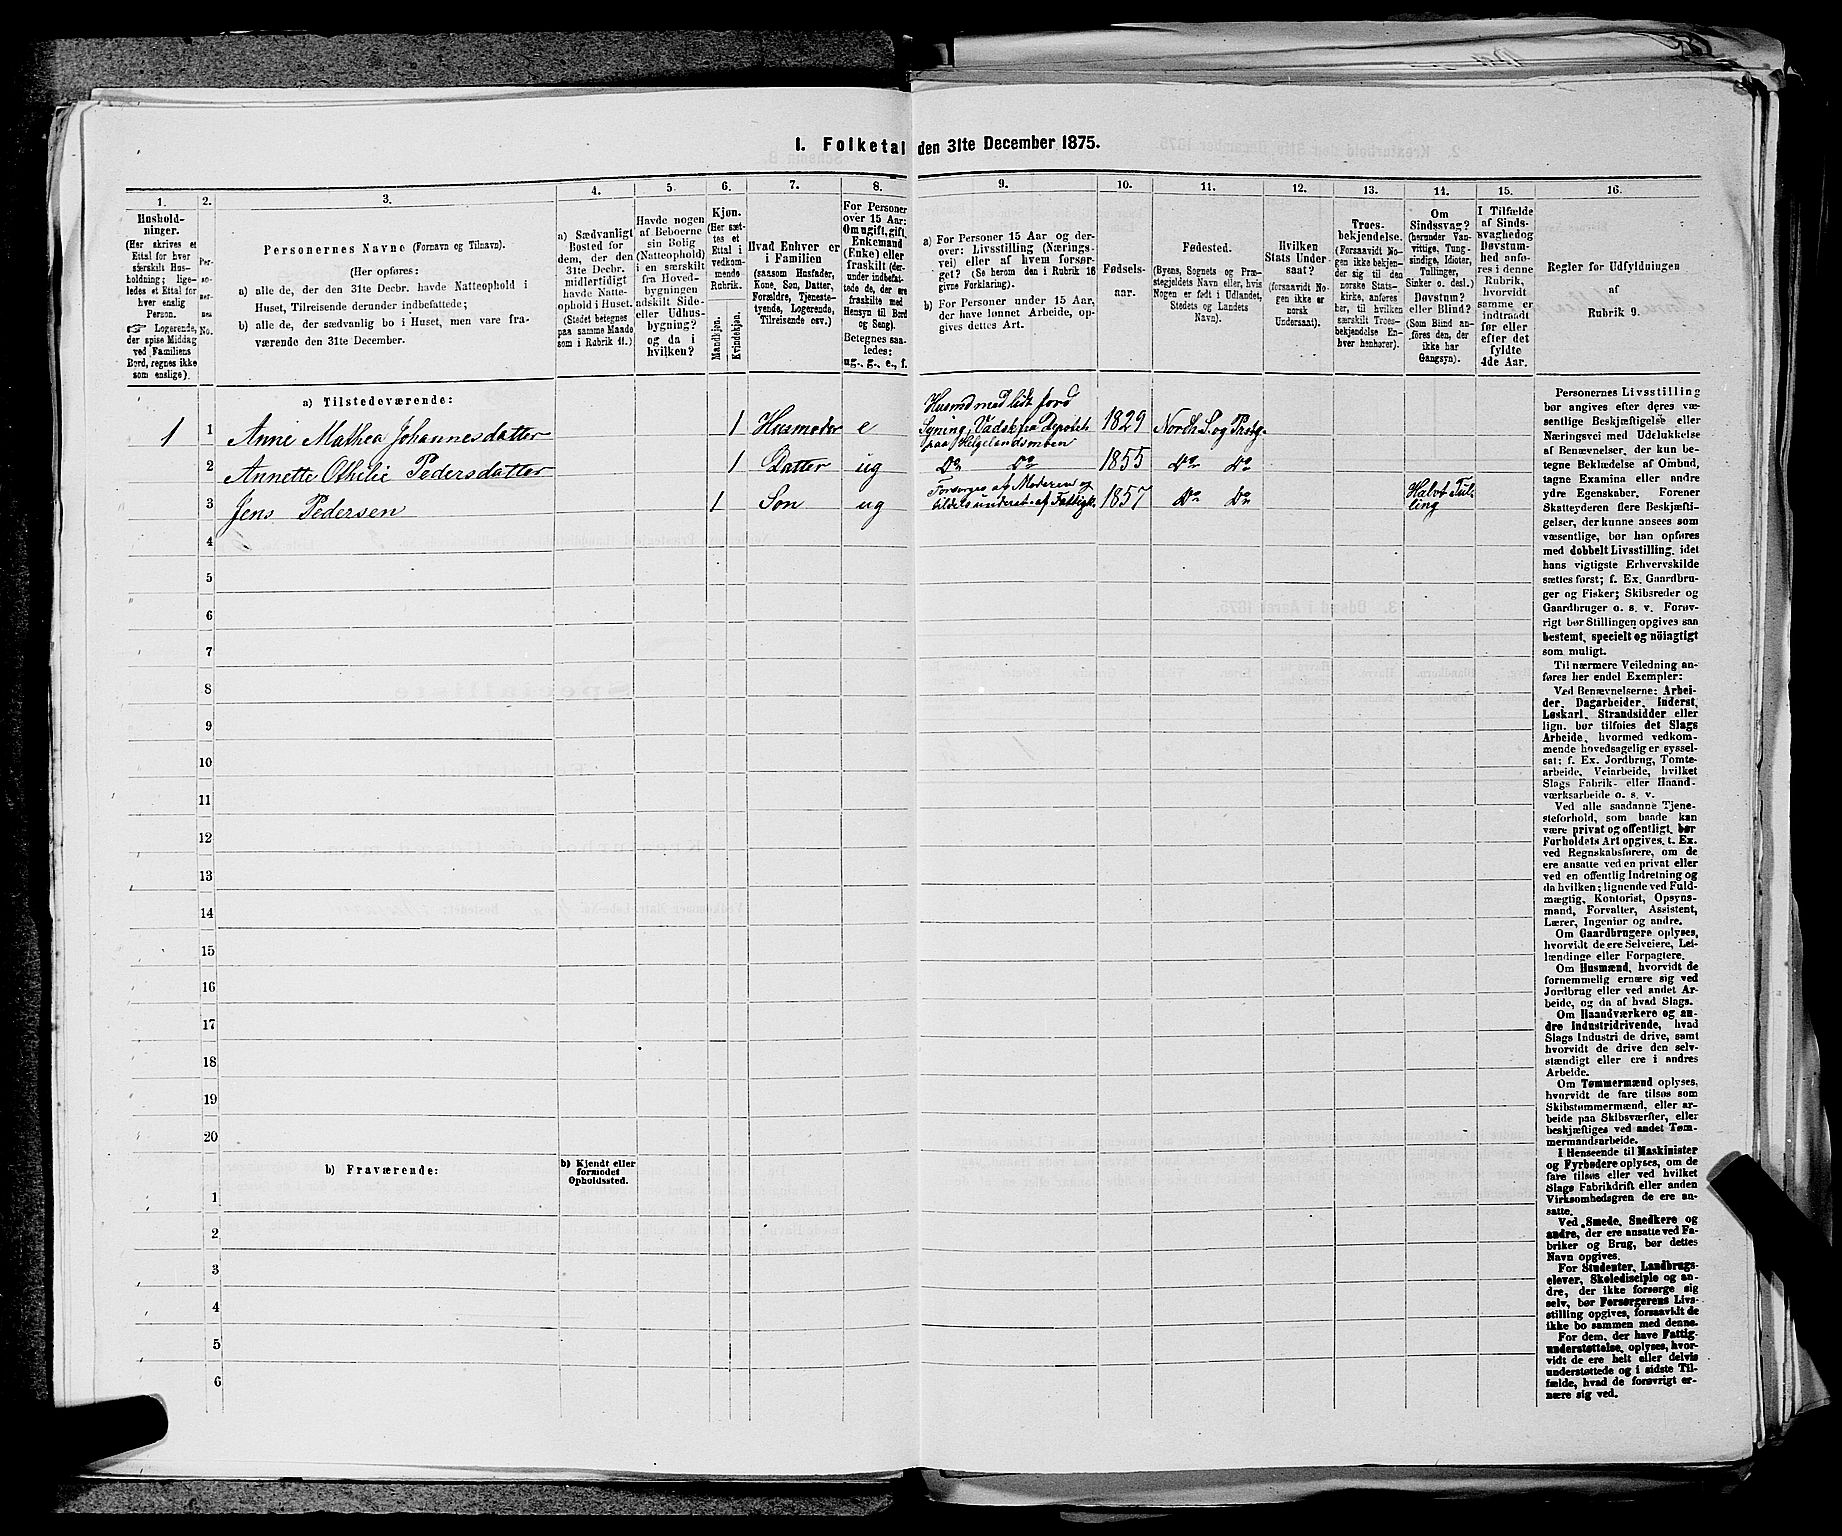 1. Folketal den 31te December 1875.
1.
2.
3.
4.
5.
6.
7.
8.
9.
10.
11.
12.
13.
14.
15.
16.
Hushold-
ninger.
(Her skrives et
Ettal for hver
særskilt Hus-
holdning; lige-
ledes et Ettal for
hver enslig
Person.
☞ Logerende,
der spise Middag
ved Familiens
Bord, regnes ikke
som enslige).
Per-
so-
ner-
nes
No.
Personernes Navne (Fornavn og Tilnavn).
(Her opføres:
a) alle de, der den 31te Decbr. havde Natteophold i
Huset, Tilreisende derunder indbefattede;
b) alle de, der sædvanlig bo i Huset, men vare fra-
værende den 31te December.
a) Sædvanligt
Bosted for
dem, der den
31te Decbr.
midlertidigt
havde Natte-
ophold i Huset.
(Stedet betegnes
paa samme Maade
som i Rubrik 11.)
Havde nogen
af Beboerne
sin Bolig
(Natteophold)
i en særskilt
fra Hoved-
bygningen
adskilt Side-
eller Udhus-
bygning?
og da i
hvilken?
Kjøn.
(Her sæt-
tes et
Ettal i
vedkom-
mende
Rubrik.
Mandkjøn.
Kvindekjøn.
Hvad Enhver er
i Familien
(saasom Husfader,
Kone, Søn, Datter,
Forældre, Tjeneste-
tyende, Logerende,
Tilreisende osv.)
For Personer
over 15 Aar:
Om ugift, gift,
Enkemand
(Enke) eller
fraskilt (der-
under indbefat-
tede de, der ere
fraskilte med
Hensyn til Bord
og Seng).
Betegnes saa-
ledes:
ug., g., e., f.
a) For Personer 15 Aar og der-
over: Livsstilling (Nærings-
vei) eller af hvem forsør-
get? (Se herom den i Rubrik 16
givne Forklaring).
b) For Personer under 15 Aar,
der have lønnet Arbeide, op-
gives dettes Art.
Fødsels-
aar.
Fødested.
(Byens, Sognets og Præ-
stegjeldets Navn eller, hvis
Nogen er født i Udlandet,
Stedets og Landets
Navn).
Hvilken
Stats Under-
saat?
(forsaavidt No-
gen ikke er
norsk
Undersaat).
Troes-
bekjendelse.
(Forsaavidt No-
gen ikke bekjen-
der sig til den
norske Stats-
kirke, anføres
her, til hvilken
særskilt Troes-
bekjendelse En-
hver henhører).
Om
Sindssvag?
(herunder Van-
vittige, Tung-
sindige, Idioter,
Tullinger,
Sinker o. desl.)
Døvstum?
eller Blind?
(Som Blind an-
føres den, der
ikke har
Gangsyn).
I Tilfælde
af Sinds-
svaghed og
Døvstum-
hed anfø-
res i denne
Rubrik,
hvorvidt
samme er
indtraadt
før eller
efter det
fyldte
4de Aar.
Regler for Udfyldningen
af
Rubrik 9.
a) Tilstedeværende:
1 1 Anne Mathea Johannesdatter 1 Husmoder e Husmd med lidt Jord
Syning, Vadsk fra Depotet
paa Helgelandsmoen 1829 Nordh. S. og Prstg.
2 Annette Othelie Pedersdatter 1 Datter ug Do Do 1855 Do Do
3 Jens Pedersen 1 Søn ug Forsørges af Moderen og
tildels underst. af Fattigk. 1857 Do Do Halvt Tul-
ling
4
5
6
7
8
9
10
11
12
13
14
15
16
17
18
19
20
b) Fraværende:
b) Kjendt eller
formodet
Opholdssted.
1
2
3
4
5
6
Personernes Livsstilling
bør angives efter deres væ-
sentlige Beskjæftigelse eller
Næringsvei med Udelukkelse
af Benævnelser, der kun be-
tegne Beklædelse af Ombud,
tagne Examina eller andre
ydre Egenskaber. Forener
Skatteyderen flere Beskjæfti-
gelser, der kunne ansees som
væsentlige, bør han opføres
med dobbelt Livsstilling, idet
hans vigtigste Erhvervskilde
sættes først; f. Ex. Gaardbru-
ger og Fisker; Skibsreder og
Gaardbruger o. s. v. Forøv-
rigt bør Stillingen opgives saa
bestemt, specielt og nöiagtigt
som muligt.
Til nærmere Veiledning an-
føres her endel Exempler:
Ved Benævnelserne: Arbei-
der, Dagarbeider, Inderst,
Løskarl, Strandsidder eller
lign. bør tilføies det Slags
Arbeide, hvormed vedkom-
mende hovedsagelig er syssel-
sat; f. Ex. Jordbrug, Tomte-
arbeide, Veiarbeide, hvilket
Slags Fabrik- eller Haand-
værksarbeide o. s. v.
Ved alle saadanne Tjene-
steforhold, som baade kan
være privat og offentligt, bør
Forholdets Art opgives. t. Ex.
ved Regnskabsførere, om de
ere ansatte ved en privat eller
ved en offentlig Indretning og
da hvilken; lignende ved Fuld-
mægtig, Kontorist, Opsyns-
mand, Forvalter, Assistent,
Lærer, Ingeniør og andre.
Om Gaardbrugere oplyses,
hvorvidt de ere Selveiere, Lei-
lændinge eller Forpagtere.
Om Husmænd, hvorvidt de
fornemmelig ernære sig ved
Jordbrug eller ved andet Ar-
beide, og da af hvad Slags.
Om Haandværkere og an-
dre Industridrivende, hvad
Slags Industri de drive, samt
hvorvidt de drive den selv-
stændigt eller ere i andres
Arbeide.
Om Tømmermænd oplyses,
hvorvidt de fare tilsøs som
Skibstømmermænd, eller ar-
beide paa Skibsværfter, eller
beskjæftiges ved andet Tøm-
mermandsarbeide.
I Henseende til Maskinister
og Fyrbødere oplyses, om de
fare tilsøs eller ved hvilket
Slags Fabrikdrift eller anden
Virksomhedsgren de ere an-
satte.
Ved Smede, Snedkere og
andre, der ere ansatte ved Fa-
briker og Brug, bør dettes
Navn opgives.
For Studenter, Landbrugs-
elever, Skoledisciple og an-
dre, der ikke forsørge sig
selv, bør Forsørgerens Livs-
stilling opgives, forsaavidt de
ikke bo sammen med denne.
For dem, der have Fattig-
understøttelse, oplyses, hvor-
vidt de ere helt eller delvis
understøttede og i sidste Til-
fælde, hvad de forøvrigt er-
nære sig ved.